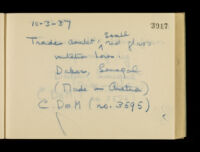 10-3-37
3917
Trades amulet; small
red glass
imitation
Dakar, Senegal
(Made in Austria)
C. D. M (no. 3595)